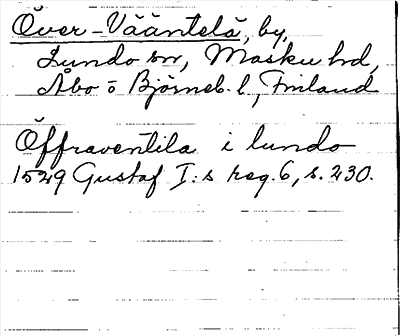 Över-Vääntelä, by,
Lundo sn, Masku hd,
Åbo o Björneb. l., Finland
Öffraventila i lundo
1529 Gustaf I:s reg. 6, s. 230.